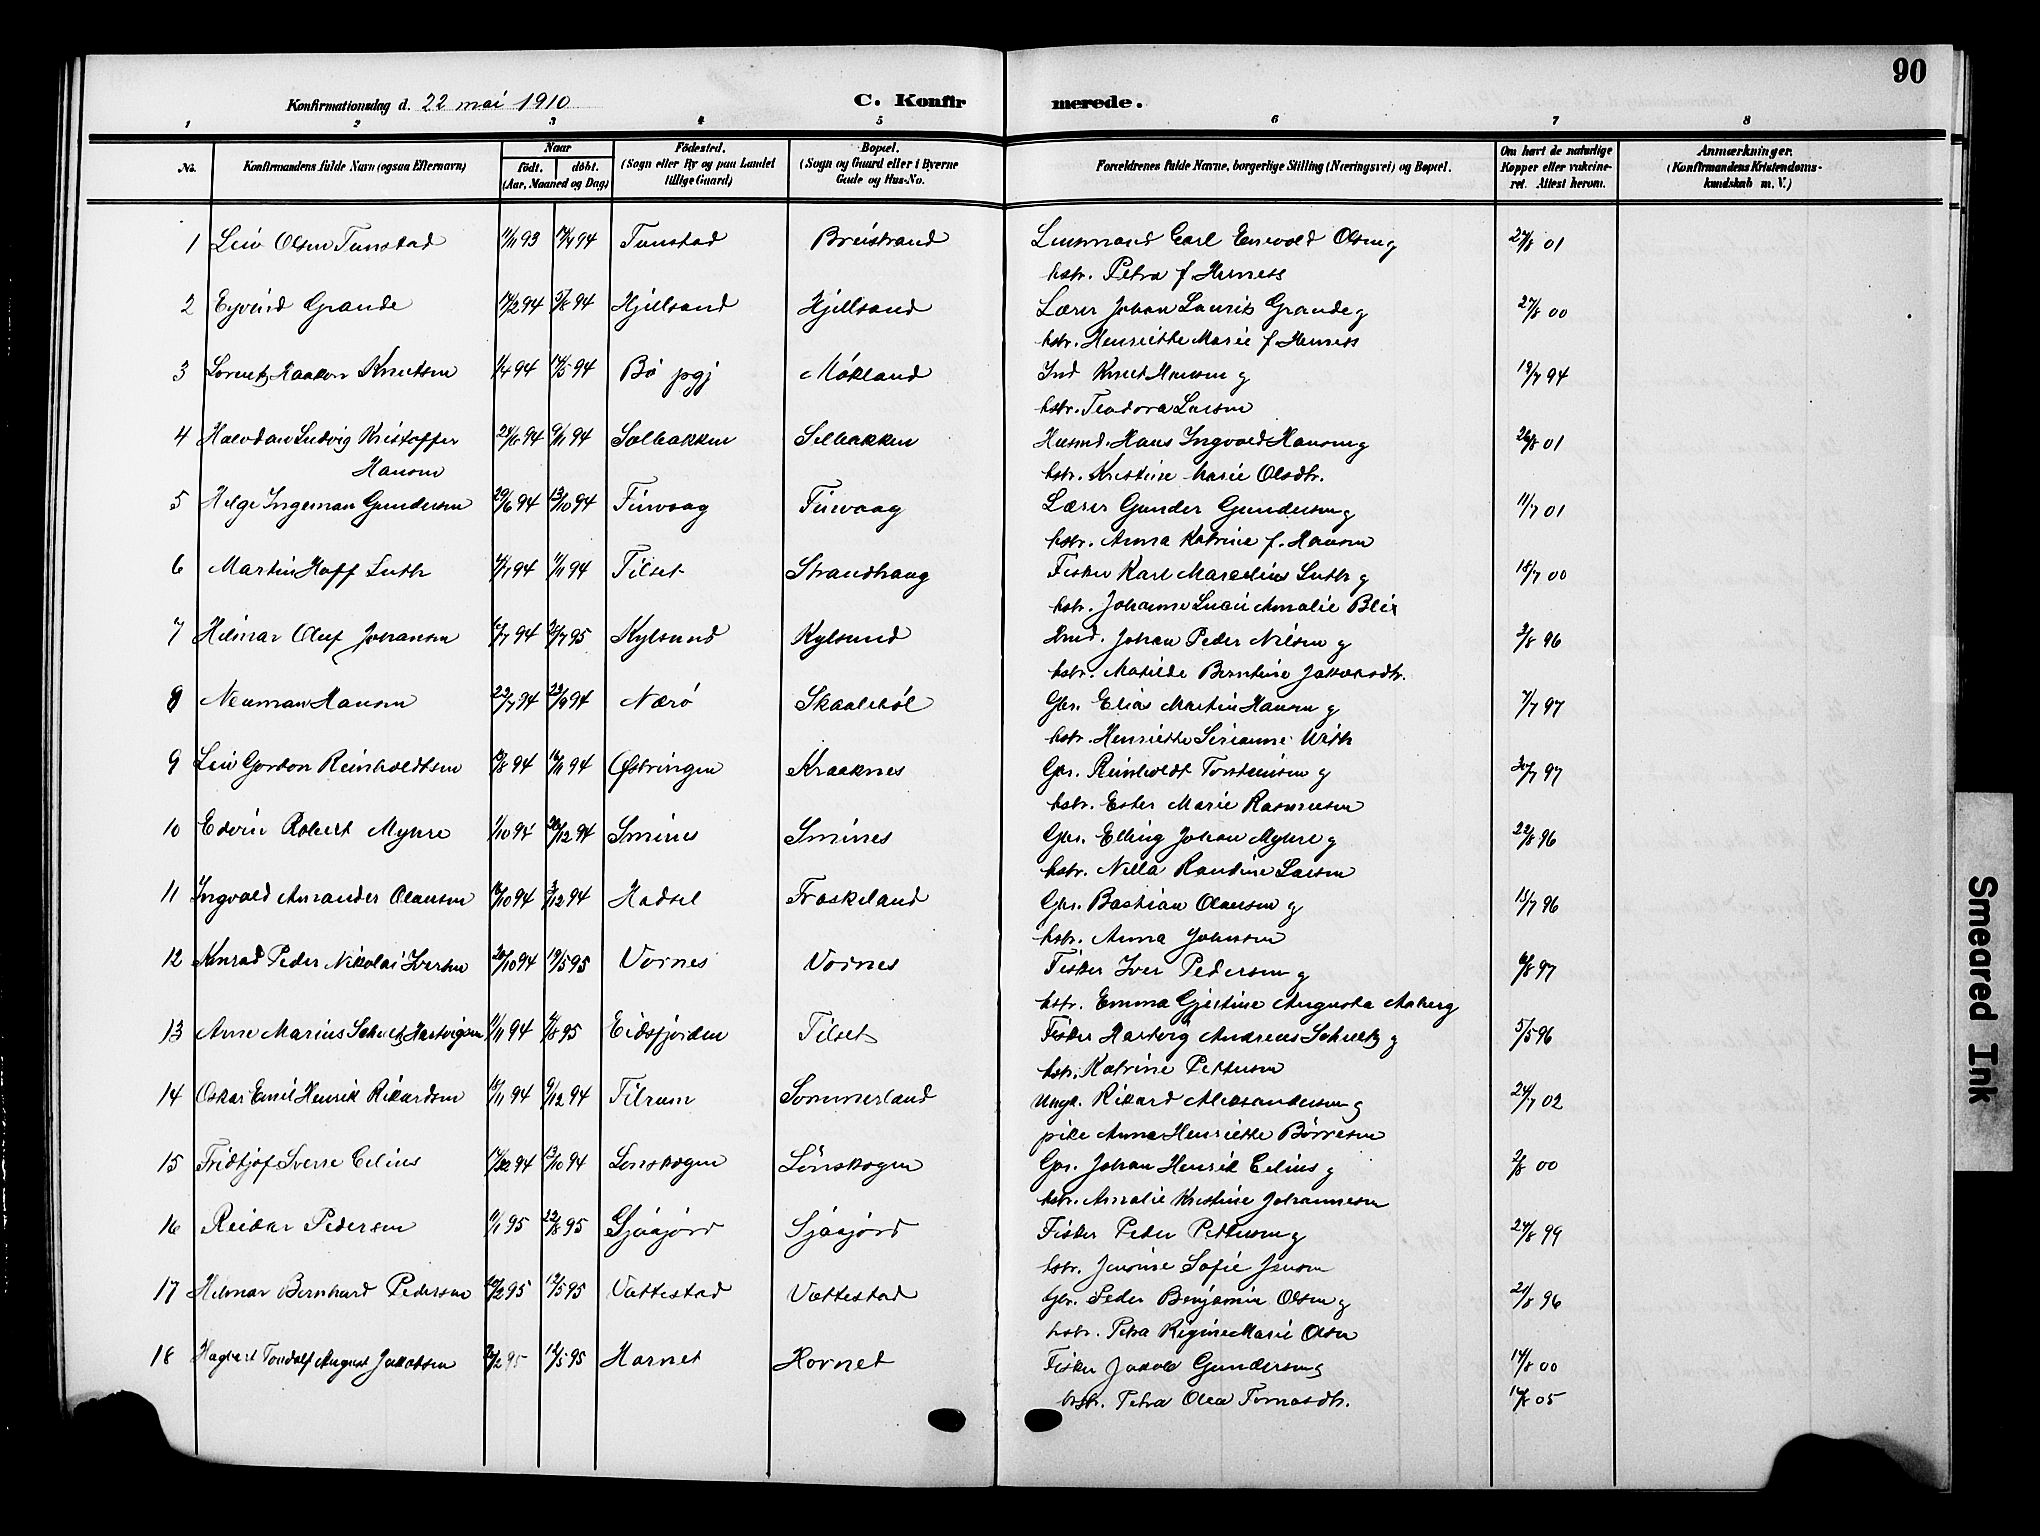 90
Konfirmationsdag d. 22 mai 1910
C. Konfirmerede.
1 2 3 4 5 6 7 8
No.
Konfirmandens fulde Navn (ogsaa Efternavn)
Naar
født. døbt.
(Aar, Maaned og Dag)
Fødested.
(Sogn eller By og paa Landet
tillige Gaard)
Bopæl.
(Sogn og Gaard eller i Byerne
Gade og Hus-No.
Forældrenes fulde Navne, borgerlige Stilling (Næringsvei) og Bopæl.
Om havt de naturlige
Kopper eller vakcine-
ret. Attest herom.
Anmærkninger.
(Konfirmandens Kristendoms-
kundskab m. V.)
1 Leiv Olsen Tunstad 11/11 93 94 Tunstad Breistrand Lensmand Carl Enevold Olsen og 27/8 01
hstr. Petra f. Hemess
2 Eyvind Grande 17/2 94 5/8 94 Hjellsand Hjellsand Lærer Johan Laurits Grande og 27/8 00
hstr. Henriette Marie f. Hemess
3 Lorentz Haakon Knutsen 1/4 94 14/5 94 Bø pgj Møkland Ind Knut Hansen og 19/7 94
hstr. Teodora Larsen
4 Halvdan Ludvig Kristoffer 94 9/11 94 Solbakken Solbakken Husmd. Hans Ingvald Hansen og 26/8 01
Hansen
hstr. Kristine Marie Olsdtr.
5 Helge Ingeman Gundersen 29/6 94 13/10 94 Tinvaag Tinvaag Lærer Gunder Gundersen og 11/7 01
hstr. Anna Katrine f. Hansen
6 Martin Hoff Luth 94 11/11 94 Tilset Strandhaug Fisker Karl Marcelius Luth og 18/7 00
hstr. Johanne Lucie Amalie Blix
7 Hilmar Oluf Johansen 94 95 Kylsund Kylsund Johan Peder Nilsen og 3/8 96
hstr. Matilde Berntine Jakobsdtr.
8 Neuman Hansen 22/7 94 23/9 94 Nærø Skaalebøl Gbr. Elias Martin Hansen og 7/7 97
hstr. Henriette Sirianne With
9 Leiv Gordon Reinholdtsen 13/8 94 94 Østringen Kraaknes Gbr. Reinholdt Torsteinsen og 30/7 97
hstr. Ester Marie Rasmussen
10 Edvin Robert Myhre 1/10 94 26/12 94 Smines Smines Gbr. Elling Johan Myhre og 22/8 96
hstr. Nella Randine Larsen
11 Ingvald Amandus Olausen 94 3/12 94 Hadsel Fraskeland Gbr. Bastian Olausen og 15/7 96
hstr. Anna Johnsen
12 Konrad Peder Nikolai Iversen 20/10 94 19/5 95 Vornes Vornes Fisker Iver Pedersen og 6/8 97
hstr. Emma Gjertine Augusta Aaberg
13 Arne Marius Schultz Hartvigsen 11/11 94 95 Eidsfjorden Tilset Fisker Hartvig Andreas Schultz og 5/5 96
hstr. Katrine Pettersen
14 Oskar Emil Henrik Rikardsen 15/11 94 9/12 94 Tilrum Sommerland Ungk. Rikard Aleksandersen og 24/7 02
pike Anna Henriette Børresen
15 Fridtjof Sverre Celius 94 13/10 94 Lønskogen Lønskogen Gbr. Johan Henrik Celius og 2/8 00
hstr. Amalie Kristine Johannesen
16 Reidar Pedersen 11/1 95 22/8 95 Gjáajörd Sjáajörd Fisker Peder Pettersen og 24/8 99
hstr. Jensine Sofie Jensen
17 Helmar Bernhard Pedersen 20/2 95 12/5 95 Vottestad Vottestad Gbr. Peder Benjamin Olsen og 21/8 96
hstr. Petra Regine Marie Olsen
18 Hagbart Tondolf August Jakobsen 95 12/5 95 Hornet Hornet Fisker Jakob Gundersen og 14/8 00
hstr. Petra Olea Tomasdtr. 05
Smeared Ink